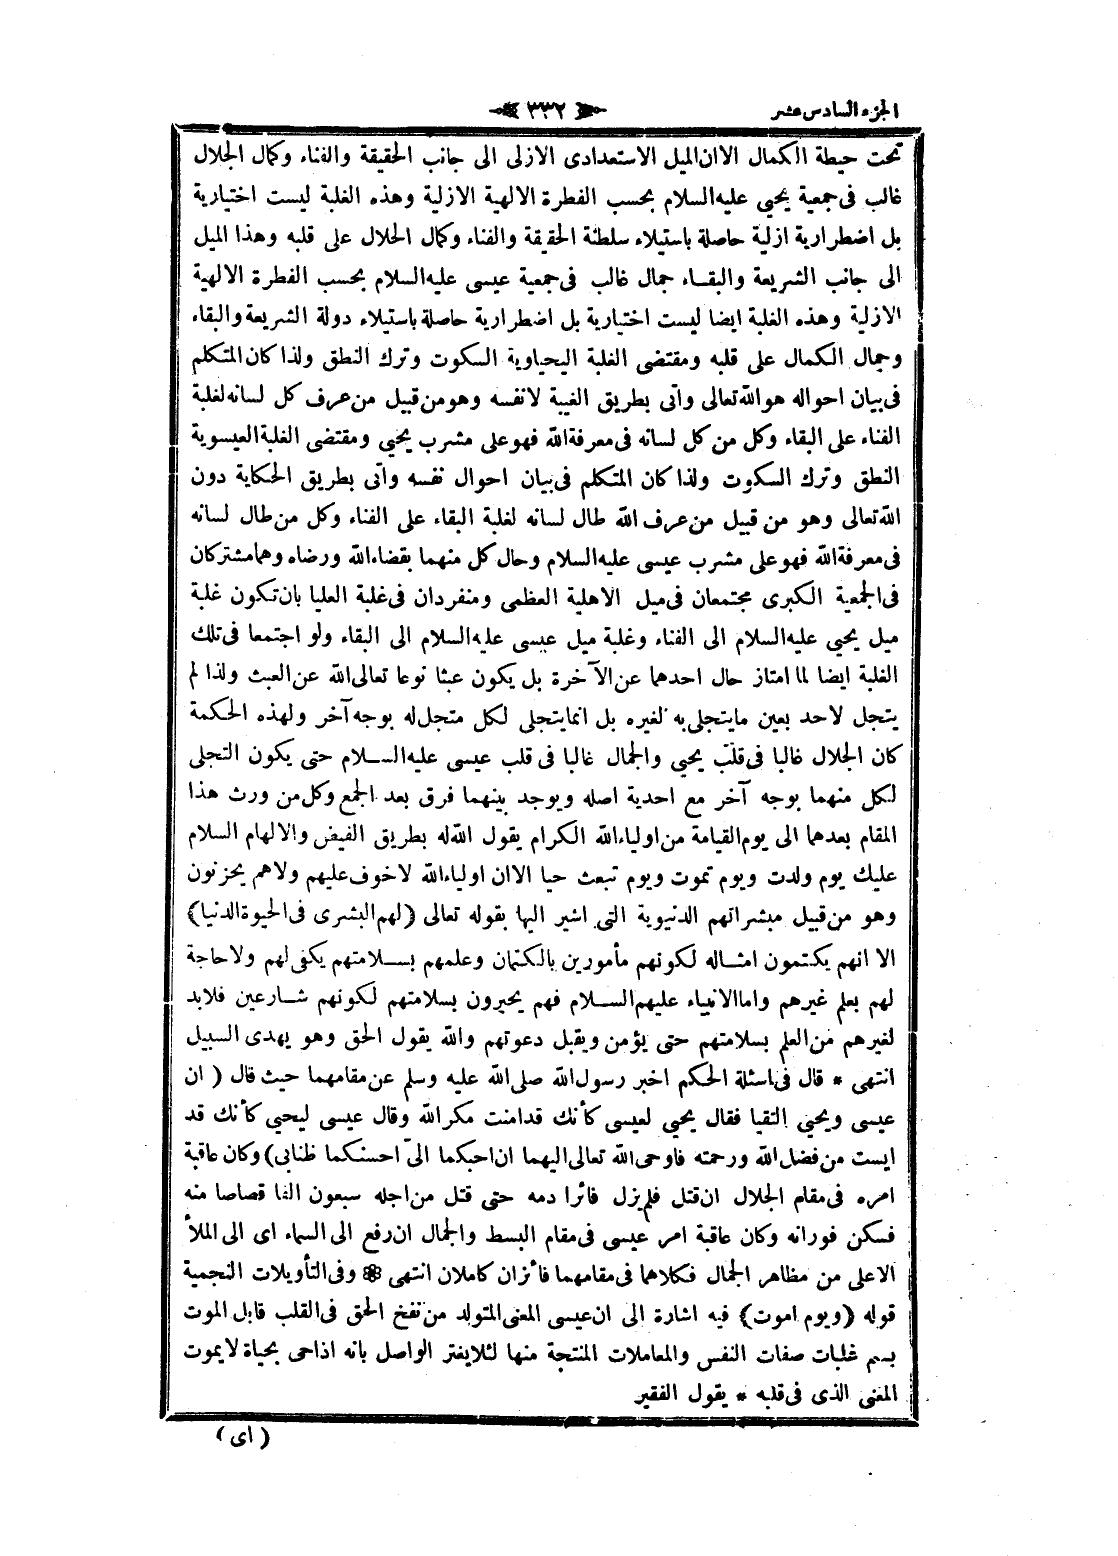 الجزء السادس عشر
٣٣٢
تحت حيطة الكمال الا ان الميل الاستعدادى الازلى الى جانب الحقيقة والفناء وكمال الجلال
غالب فى جمعية يحيى عليه السلام بحسب الفطرة الالهية الازلية وهذه الغلبة ليست اختيارية
بل اضطرارية ازلية حاصلة باستيلاء سلطنة الحقيقة والفناء وكمال الجلال على قلبه وهذا الميل
الى جانب الشريعة والبقاء جمال غالب فى جمعية عيسى عليه السلام بحسب الفطرة الالهية
الازلية وهذه الغلبة ايضا ليست اختيارية بل اضطرارية حاصلة باستيلاء دولة الشريعة والبقاء
وجمال الكمال على قلبه ومقتضى الغلبة اليحياوية السكوت وترك النطق ولذا كان المتكلم
فى بيان احواله هو الله تعالى واتى بطريق الغيبة لا نفسه وهو من قبيل من عرف كل لسانه لغلبة
الفناء على البقاء وكل من كل لسانه فى معرفة الله فهو على مشرب يحيى ومقتضى الغلبة العيسوية
النطق وترك السكوت ولذا كان المتكلم فى بيان احوال نفسه واتى بطريق الحكاية دون
الله تعالى وهو من قبيل من عرف الله طال لسانه لغلبة البقاء على الفناء وكل من طال لسانه
فى معرفة الله فهو على مشرب عيسى عليه السلام وحال كل منهما بقضاء الله ورضاه وهما مشتركان
فى الجمعية الكبرى مجتمعان فى ميل الاهلية العظمى ومنفردان فى غلبة العليا بان تكون غلبة
ميل يحيى عليه السلام الى الفناء وغلبة ميل عيسى عليه السلام الى البقاء ولو اجتمعا فى تلك
الغلبة ايضا لما امتاز حال احدهما عن الآخرة بل يكون عبثا نوعا تعالى الله عن العبث ولذا لم
يتجل لاحد بعين ما يتجلى به لغيره بل انما يتجلى لكل متجل له بوجه آخر ولهذه الحكمة
كان الجلال غالبا فى قلب يحيى والجمال غالبا فى قلب عيسى عليه السلام حتى يكون التجلى
لكل منهما بوجه آخر مع احدية اصله ويوجد بينهما فرق بعد الجمع وكل من ورث هذا
المقام بعدهما الى يوم القيامة من اولياء الله الكرام يقول الله له بطريق الفيض والالهام السلام
عليك يوم ولدت ويوم تموت ويوم تبعث حيا الا ان اولياء الله لا خوف عليهم ولا هم يحزنون
وهو من قبيل مبشراتهم الدنيوية التى اشير اليها بقوله تعالى (لهم البشرى فى الحيوة الدنيا)
الا انهم يكتمون امثاله لكونهم مأمورين بالكتمان وعلمهم بسلامتهم يكفى لهم ولا حاجة
لهم بعلم غيرهم واما الانبياء عليهم السلام فهم يخبرون بسلامتهم لكونهم شارعين فلا بد
لغيرهم من العلم بسلامتهم حتى يؤمن ويقبل دعوتهم والله يقول الحق وهو يهدى السبيل
انتهى * قال فى اسئلة الحكم اخبر رسول الله صلى الله عليه وسلم عن مقامهما حيث قال ( ان
عيسى ويحيى التقيا فقال يحيى لعيسى كأنك قد امنت مكر الله وقال عيسى ليحيى كأنك قد
ايست من فضل الله ورحمته فاوحى الله تعالى اليهما ان احبكما الىّ احسنكما ظنا بى) وكان عاقبة
امره فى مقام الجلال ان قتل فلم يزل فائرا دمه حتى قتل من اجله سبعون الفا قصاصا منه
فسكن فورانه وكان عاقبة امر عيسى فى مقام البسط والجمال ان رفع الى السماء اى الى الملأ
الاعلى من مظاهر الجمال فكلاهما فى مقامهما فائزان كاملان انتهى ❁ وفى التأويلات النجمية
قوله (ويوم اموت) فيه اشارة الى ان عيسى المعنى المتولد من نفخ الحق فى القلب قابل الموت
بسم غلبات صفات النفس والمعاملات المنتجة منها لئلا يغتر الواصل بانه اذا حى بحياة لا يموت
المعنى الذى فى قلبه * يقول الفقير
( اى )